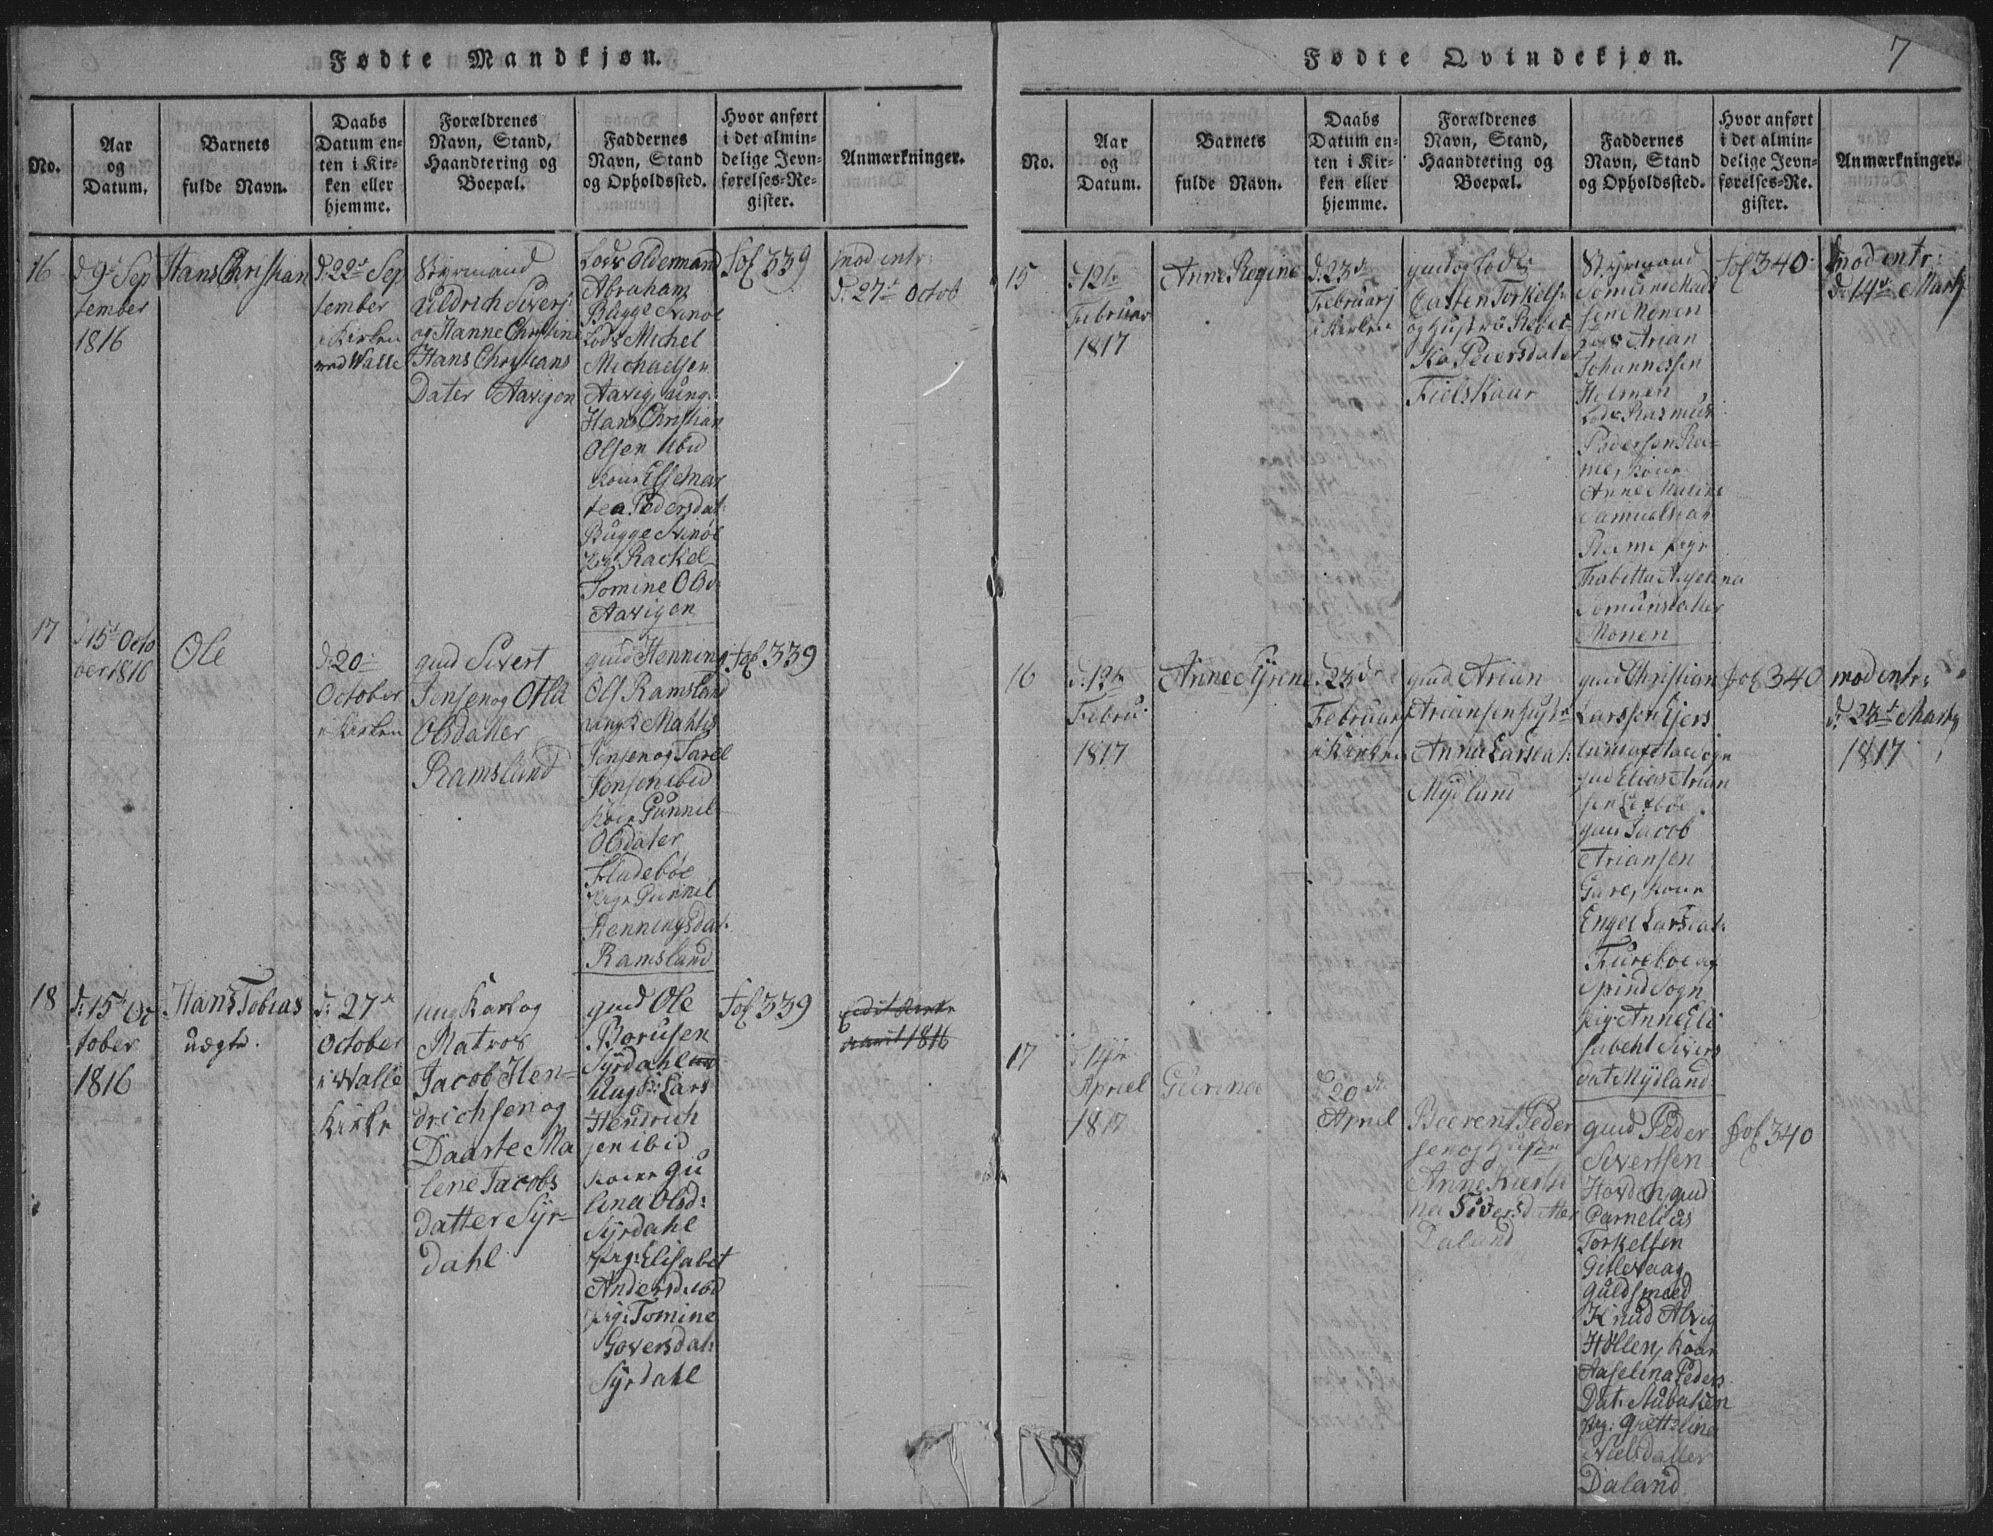 Fødte Mandkjøn.
No.
Aar
og
Datum.
Barnets
fulde Navn.
Daabs
Datum en-
ten i Kir-
ken eller
hjemme.
Forældrenes
Navn, Stand,
Haandtering og
Boepæl.
Faddernes
Navn, Stand
og Opholdssted.
Hvor anført
i det almin-
delige Jevn-
førelses-Re-
gister.
Anmærkninger.
16
d: 9de Sep
tember
1816
Hans Christian
d: 22de Sep
tember
i Kirken
ved Walle
Styrmand
Uldrich Sivers:
og Hanne Christine
Hans Christians
Dater Aavigen
Lods Oldermand
Abraham
Bugge Svinøe
Lods Michel
Michaelsen
Aavig, ung:
Hans Christian
Olsen ibid
Kone Else Mar
tea Pedersdat:
Bugge Svinøe
Pig: Rackel
Tomine Olsd:
Aavigen
Fol 339
mod entr:
d: 27de Octob
17
d: 15de Octo
ber 1816
Ole
d: 20de
October
i Kirken
gmd Sivert
Jensen og Otlia
Olsdatter
Ramsland
gmd Henning
Ols Ramsland
ungk: Mathis
Jensen og Tarel
Jensen ibid
Kone Gunnil
Olsdater
Fladebøe
Pige Gunnil
Henningsdat:
Ramsland
Fol 339
18
d: 15de Oc
tober
1816
Hans Tobias
uægte.
d: 27de
October
i Walle
Kirke
ung Karl og
Matros
Jacob Hen-
drichsen og
Daarte Ma
lene Jacobs
datter Syr-
dahl
gmd Ole
Borusen
Syrdahl
Ung: K: Lars
Hendrich
sen ibid
Kone Gu
lena Olsd:
Syrdahl
Pig: Elisabet
Andersd: ibid
Pig: Tomine
Goversdat:
Syrdahl
Fol 339
1816
7
Fødte Qvindekjøn.
No.
Aar
og
Datum.
Barnets
fulde Navn.
Daabs
Datum en-
ten i Kir-
ken eller
hjemme.
Forældrenes
Navn, Stand,
Haandtering og
Boepæl.
Faddernes
Navn, Stand
og Opholdssted.
Hvor anført
i det almin-
delige Jevn-
førelses-Re-
gister.
Anmærkninger.
15
d: 12te
Februar
1817
Anne Regine
d: 23de
Februarj
i Kirken
gmd og Lods
Casten Torkels:
og Hustrue Rebek
ka Peiersdater
Fielskaar
Styrmand
Somunskads
sen Monen
Lods Arian
Johannessen
Holmen
Lods Rasmus
Pedersen Ræ-
me, Kone
Anne Malene
Samuelsdat
Ræme Pige
Thabitta Aselena
Somunsdatter
Monen
Fol 340
mod entr:
d: 14de Marty
16
d: 12te
Febru:
1817
Anne Syrene
d: 23de
Februar
i Kirken
gmd Arian
Ariansen Hustr
Anna Larsdat:
Mydland
gmd Christian
Larssen Eiers
land af Halsogn
gmd Elias Arian
sen Lexbøe
gmd Jacob
Ariansen
Gare, Kone
Engel Larsdat:
Fureboe af
Spind Sogn
Pig: Anne Eli
sabeht Sivers
dat: Mydland
Fol 340
mod entr:
d: 23de Marty
1817
17
d: 14de
Apriel
1817
Gurine
d: 20de
Apriel
Beerent Peder
sen og Hustr
Anne Kiersti
ne Siversdatter
Daland
gmd Peder
Sivertsen
Hovden, gmd
Carnelius
Torkelsen
Gitlevaag
Guldsmed
Knud Alvig
Høllen, Kone
Aaselena Peders
Dat: Stubaken
Pig: Grettelina
Nielsdatter
Daland
Fol 340